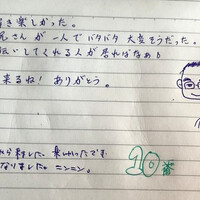 き楽しかった。
兄さんが一人でバタバタ大変そうだった。
伝いしてくれる人が居ればなぁ。
来るね！ありがとう。
から来ました。楽しかったです
なりました。ニンニン。
10番